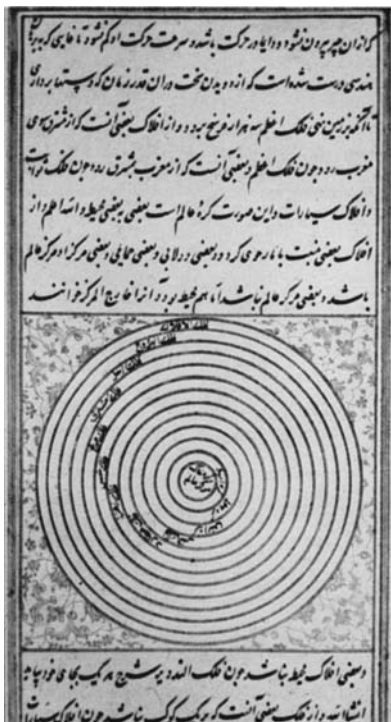 که ازان چیز بیرون نشود و دایما در حرکت باشد و سرعت حرکت او کم نشود تا غایتی که ببرهان
هندسی درست شده است که از دویدن سخت دران قدر زمان که دستها برداری
تا آنکه بزمین نهی فلک اعظم سه هزار فرسخ برود و از افلاک بعضی آنست که از مشرق بسوی
مغرب رود چون فلک اعظم و بعضی آنست که از مغرب بمشرق رود چون فلک ثوابت
و افلاک سیارات و این صورت کرهٔ عالم است بعضی ببعضی محیط والله اعلم و از
افلاک بعضی نسبت با ما رحوی گردد و بعضی دولابی و بعضی حمایلی و بعضی مرکز او مرکز عالم
باشد و بعضی مرکز عالم نباشد اما هم محیط بود آنرا خارج المرکز خوانند
فلک الافلاک
فلک البروج
فلک زحل
فلک مشتری
فلک مریخ
فلک شمس
مرکز عالم
و بعضی افلاک محیط نباشد چون فلک التدویر شرح هر یک بجای خود بیاید
انشاالله و از فلک بعضی آنست که کوکب نباشد چون افلاک سیارات